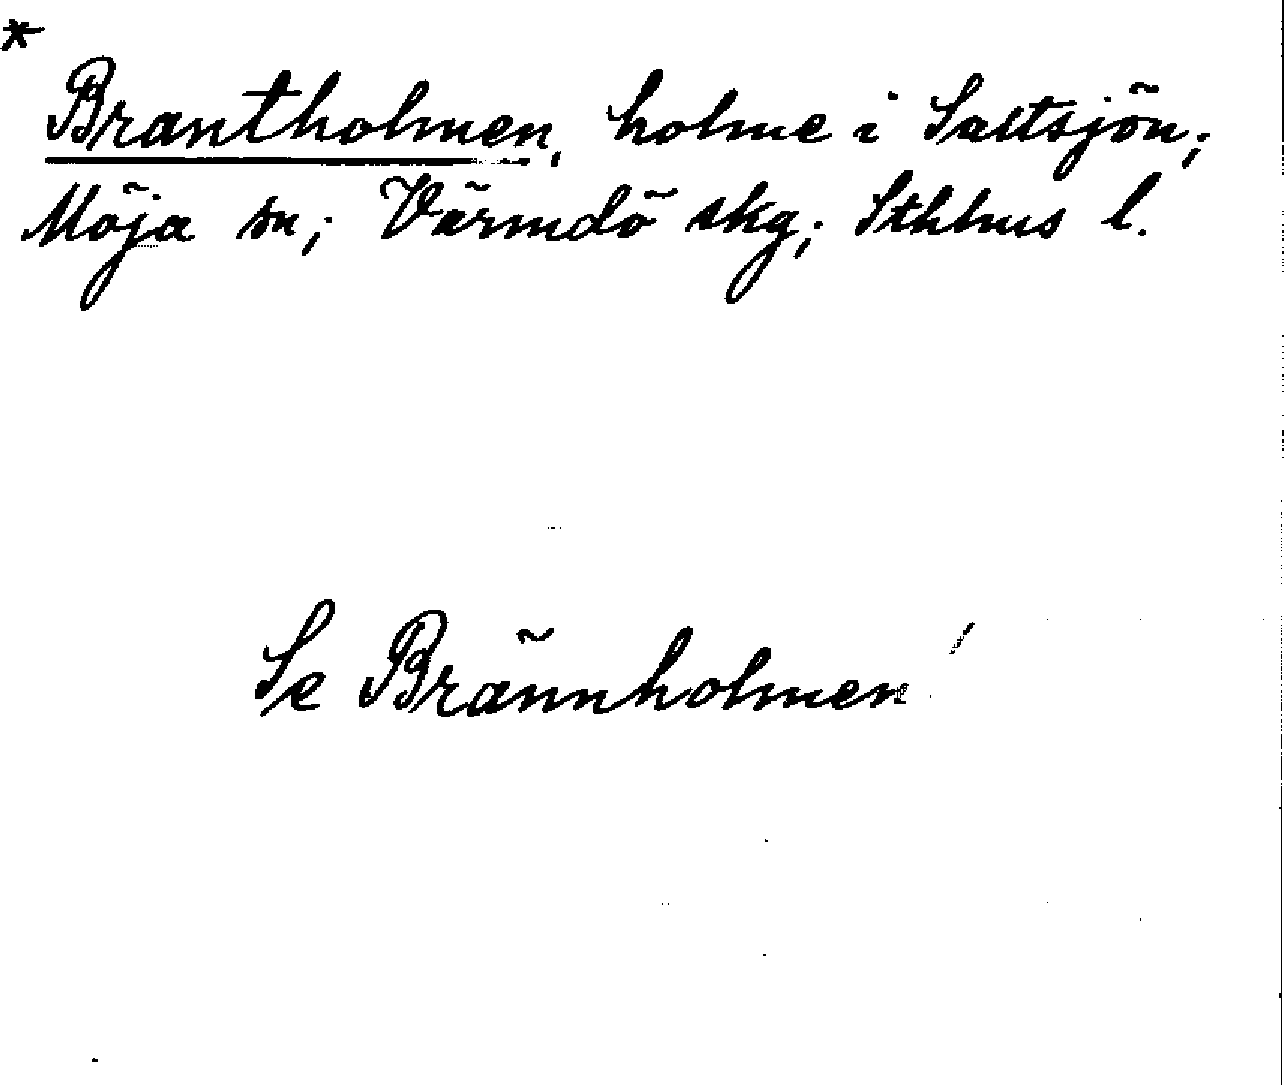 *
Brantholmen, holme i Saltsjön;
Möja sn; Värmdö skg; Sthlms l.
Se Brännholmen!